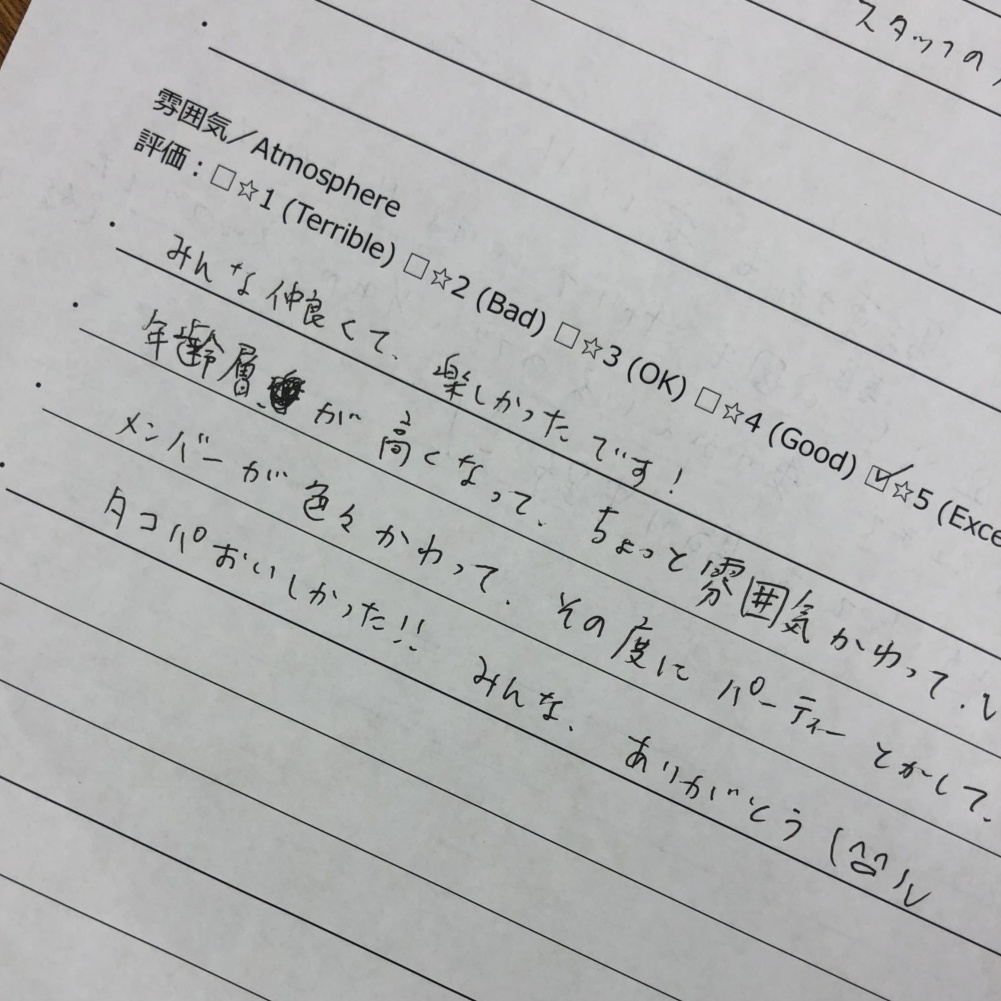 スタッフの
雰囲気／Atmosphere
評価：□☆1 (Terrible) □☆2 (Bad) □☆3 (OK) □☆4 (Good) ☑☆5 (Exce
・ みんな仲良くて、楽しかったです！
・ 年齢層が高くなって、ちょっと雰囲気かわって、い
・ メンバーが色々かわって、その度にパーティーとかして、
・ タコパおいしかった!! みんな、ありがとう